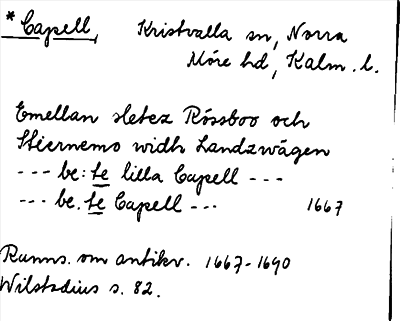 * Capell, Kristvalla sn, Norra
Möre hd, Kalm. l.
Emellan sletez Rössboo och
Stiernemo widh Landzwägen
--- be: te lilla Capell ---
--- be. te Capell --- 1667
Ranns. om antikv. 1667-1690
Wilstadius s. 82.